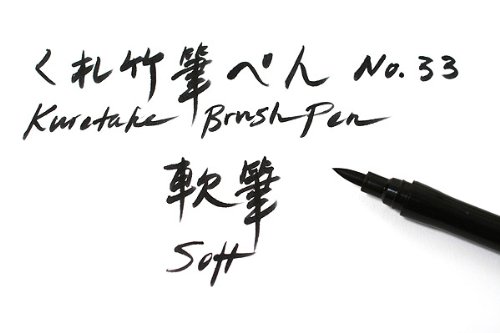 くれ竹筆ぺん No.33
Kuretake Brush Pen
軟筆
Soft